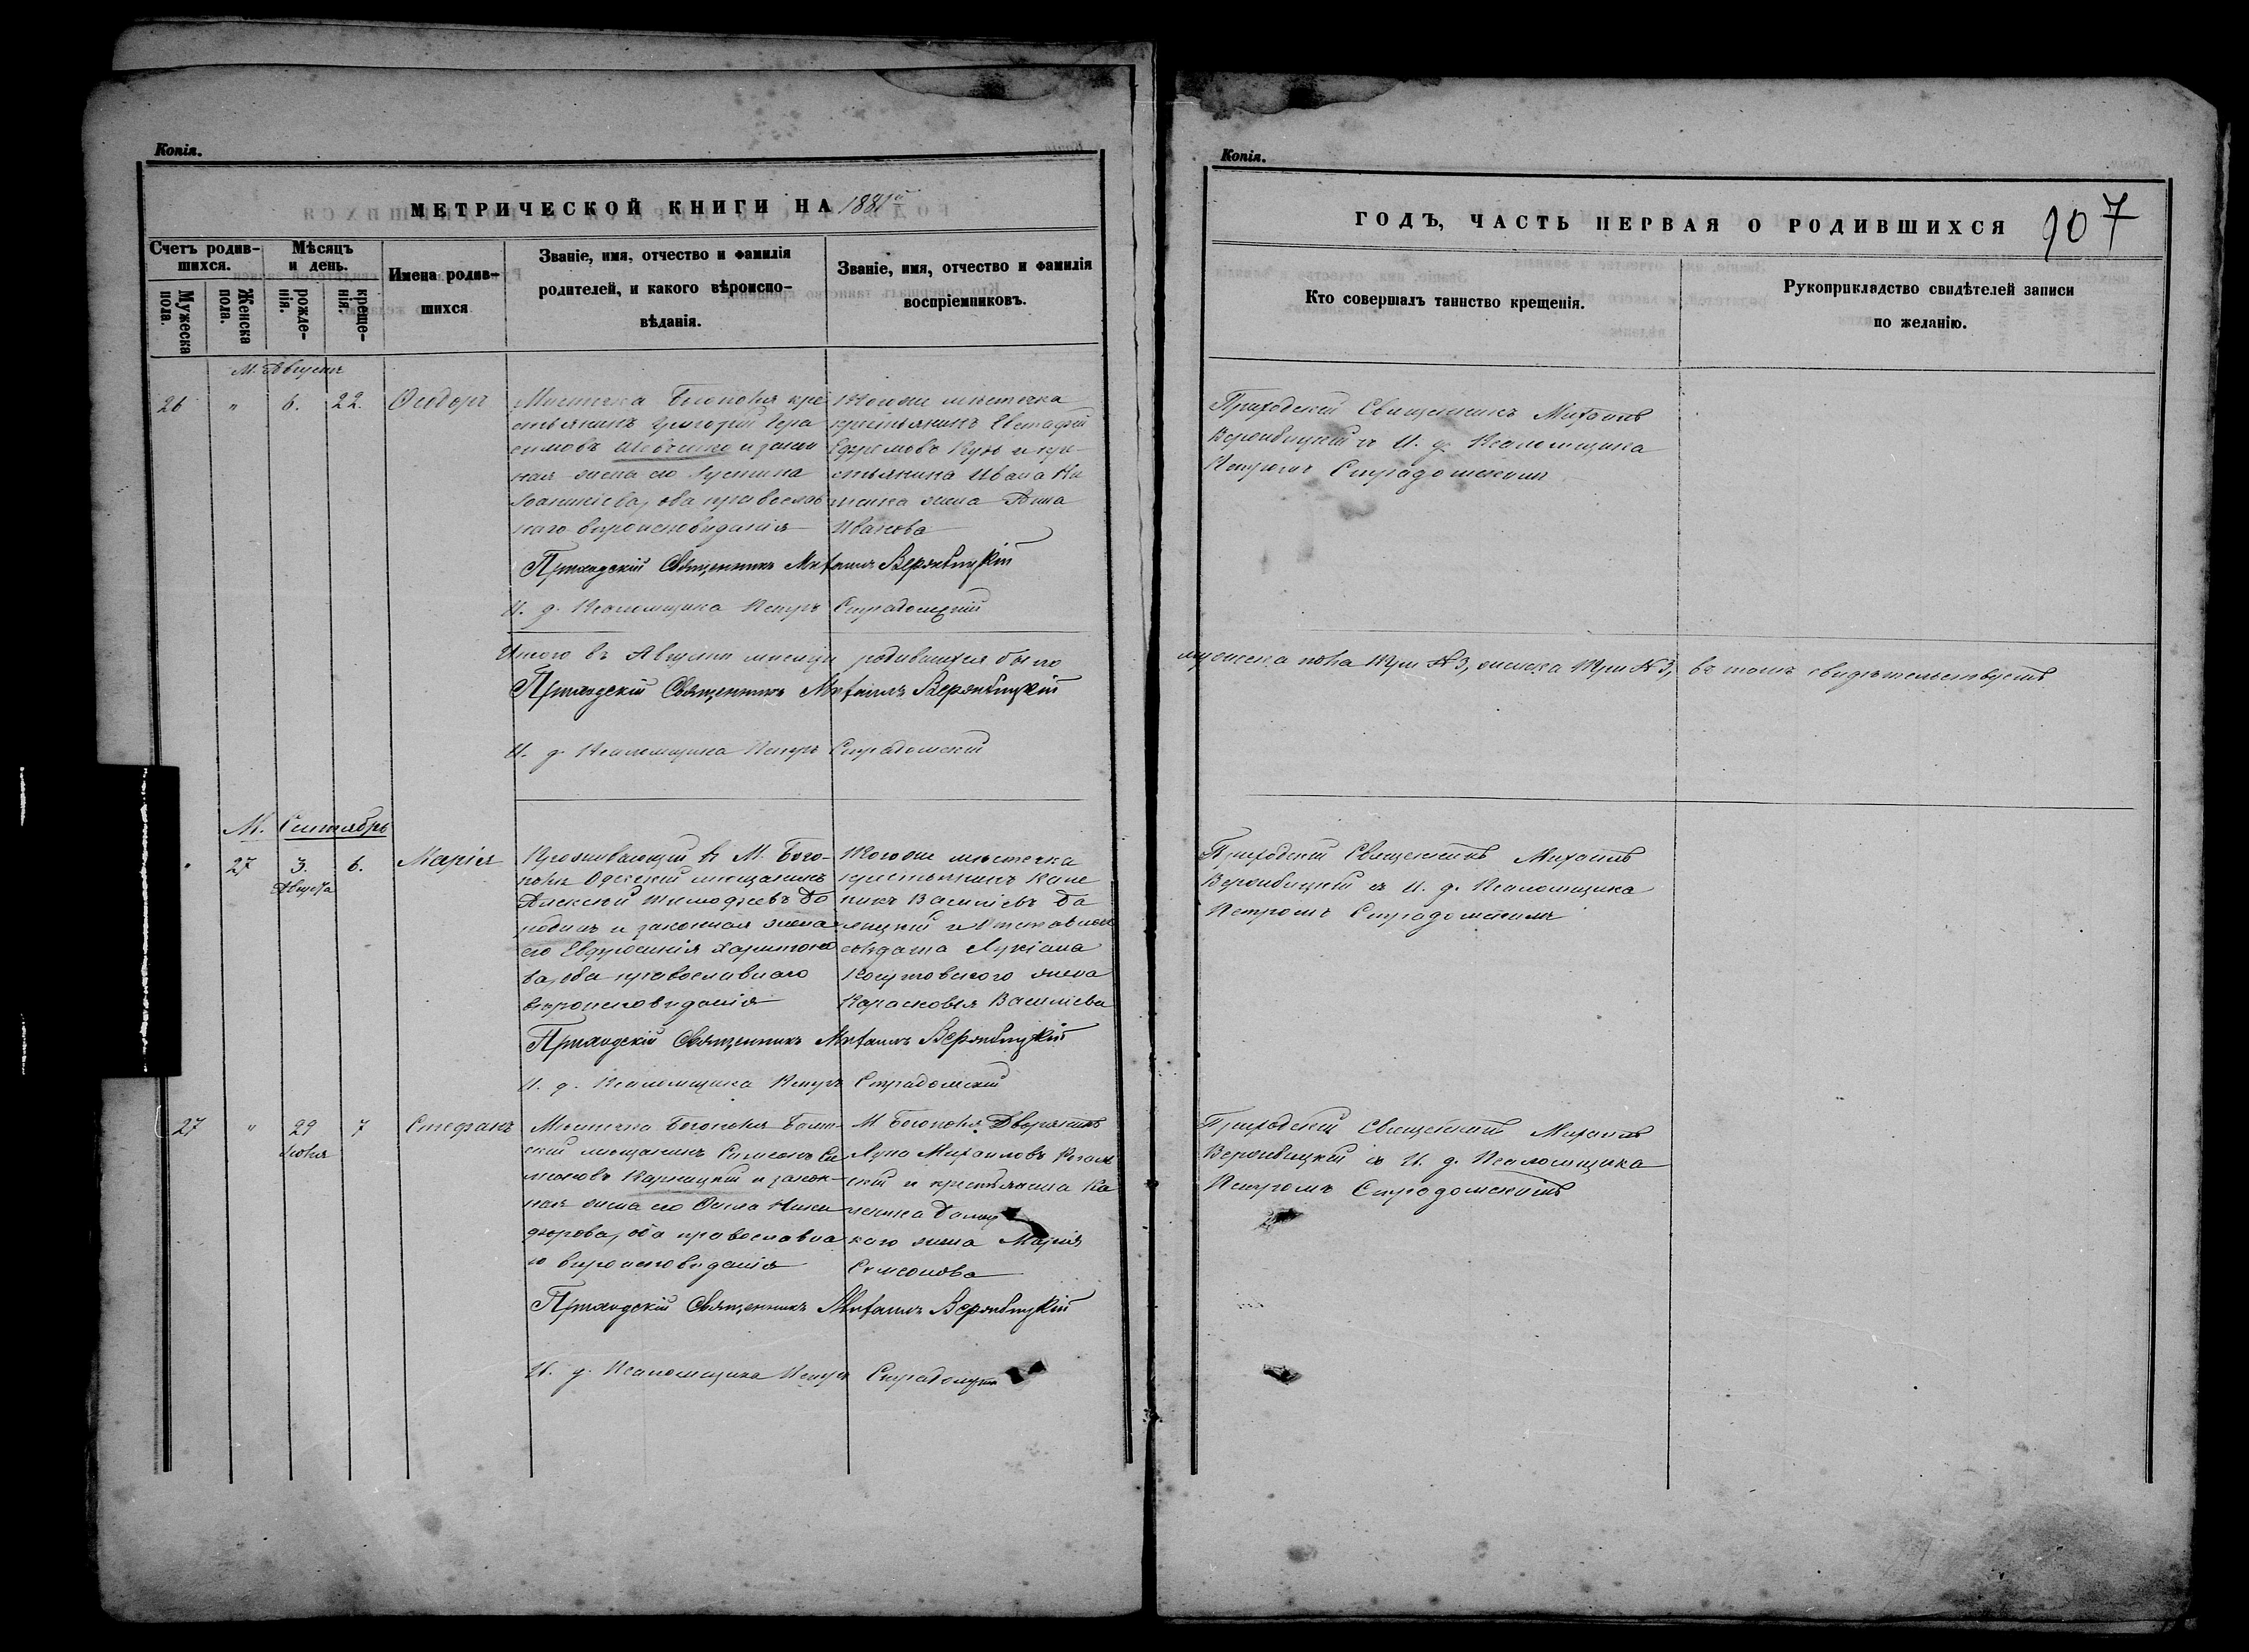 Копія.
МЕТРИЧЕСКОЙ КНИГИ НА 1881й
Счетъ родив-
шихся.
Мужеска
пола.
Женска
пола.
Мѣсяцъ
и день.
рожде-
нія.
креще-
нія.
Имена родив-
шихся
Званіе, имя, отчество и фамилія
родителей, и какого вѣроиспо-
вѣданія.
Званіе, имя, отчество и фамилія
воспріемниковъ.
М. Августъ
26 " 6. 22. Ѳеодоръ
Мѣстечка Богополя кре
стьянинъ Григорій Гера
симовъ Шевченко и закон
ная жена его Іустина
Іоанникіева, оба православ
наго вѣроисповѣданія
Тогоже мѣстечка
крестьянинъ Евстафій
Ефремовъ и кре-
стьянина Ивана
жена Анна
Иванова
Приходскій Священникъ Михаилъ Вержбицкій
И. д. Псаломщика Петръ Страдомскій
Итого въ Августѣ месяцѣ родившихся было
Приходскій Священникъ Михаилъ Вержбицкій
И. д. Псаломщика Петръ Страдомскій
М. Сентябрь
" 27 3. 6. Марія
Августа
Проживающій въ М. Бого-
полѣ Одесскій мещанинъ
Алексѣй Тимофеевъ
и законная жена
его Евфросинія Харитоно
ва, оба православнаго
вѣроисповѣданія
Тогоже мѣстечка
крестьянинъ
Василіевъ Ба
лицкій и отставнаго
солдата Лукіана
жена
Парасковья Василіева
Приходскій Священникъ Михаилъ Вержбицкій
И. д. Псаломщика Петръ Страдомскій
27 " 29 7 Стефанъ
Іюля
Мѣстечка Богополя Балт-
скій мещанинъ Симеонъ Си
меоновъ Карницкій и закон-
ная жена его Ники
форова, оба православна
го вѣроисповѣданія
М. Богополя Дворянинъ
Лука Михаиловъ
скій и крестьянина
каго жена Марія
Симеонова
Приходскій Священникъ Михаилъ Вержбицкій
И. д. Псаломщика Петръ
Копія.
ГОДЪ, ЧАСТЬ ПЕРВАЯ О РОДИВШИХСЯ
907
Кто совершалъ таинство крещенія.
Рукоприкладство свидѣтелей записи
по желанію.
Приходскій Священникъ Михаилъ
Вержбицкій съ И. д. Псаломщика
Петромъ Страдомскимъ
мужеска пола три № 3, женска три № 3, въ томъ свидѣтельствуетъ
Приходскій Священникъ Михаилъ
Вержбицкій съ И. д. Псаломщика
Петромъ Страдомскимъ
Приходскій Священникъ Михаилъ
Вержбицкій съ И. д. Псаломщика
Петромъ Страдомскимъ